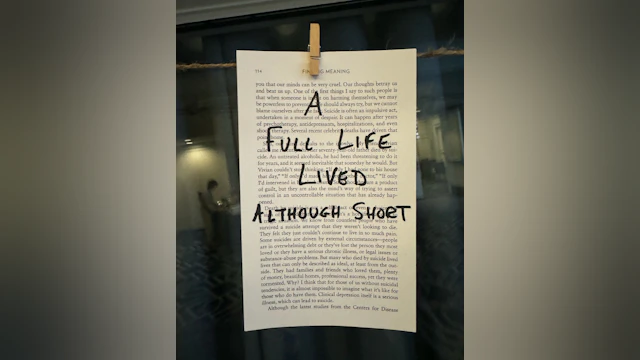 114 FINDING MEANING
you that our minds can be very cruel. Our thoughts betray us
and beat us up. One of the first things I say to such people is
that when someone is on harming themselves, we may
be powerless to prevent should always try, but we cannot
blame ourselves Suicide is often an impulsive act,
undertaken in a moment of despair. It can happen after years
of psychotherapy, antidepressants, hospitalizations, and even
therapy. Several recent celebrity deaths have driven that
A
FULL LIFE
LIVED
ALTHOUGH SHORT
cide. An untreated alcoholic, he had been threatening to do it
for years, and it seemed inevitable that someday he would. But
Vivian couldn't to his house
that day," "If only "If only
I'd a product
of guilt, but they are also the mind's way of trying to assert
control in an uncontrollable situation that has already hap-
pened.
survived a suicide attempt that they weren't looking to die.
They felt they just couldn't continue to live in so much pain.
Some suicides are driven by external circumstances—people
are in overwhelming debt or they've lost the person they most
loved or they have a serious chronic illness, or legal issues or
substance-abuse problems. But many who died by suicide lived
lives that can only be described as ideal, at least from the out-
side. They had families and friends who loved them, plenty
of money, beautiful homes, professional success, yet they were
tormented. Why? I think that for those of us without suicidal
tendencies, it is almost impossible to imagine what it's like for
those who do have them. Clinical depression itself is a serious
illness, which can lead to suicide.
Although the latest studies from the Centers for Disease